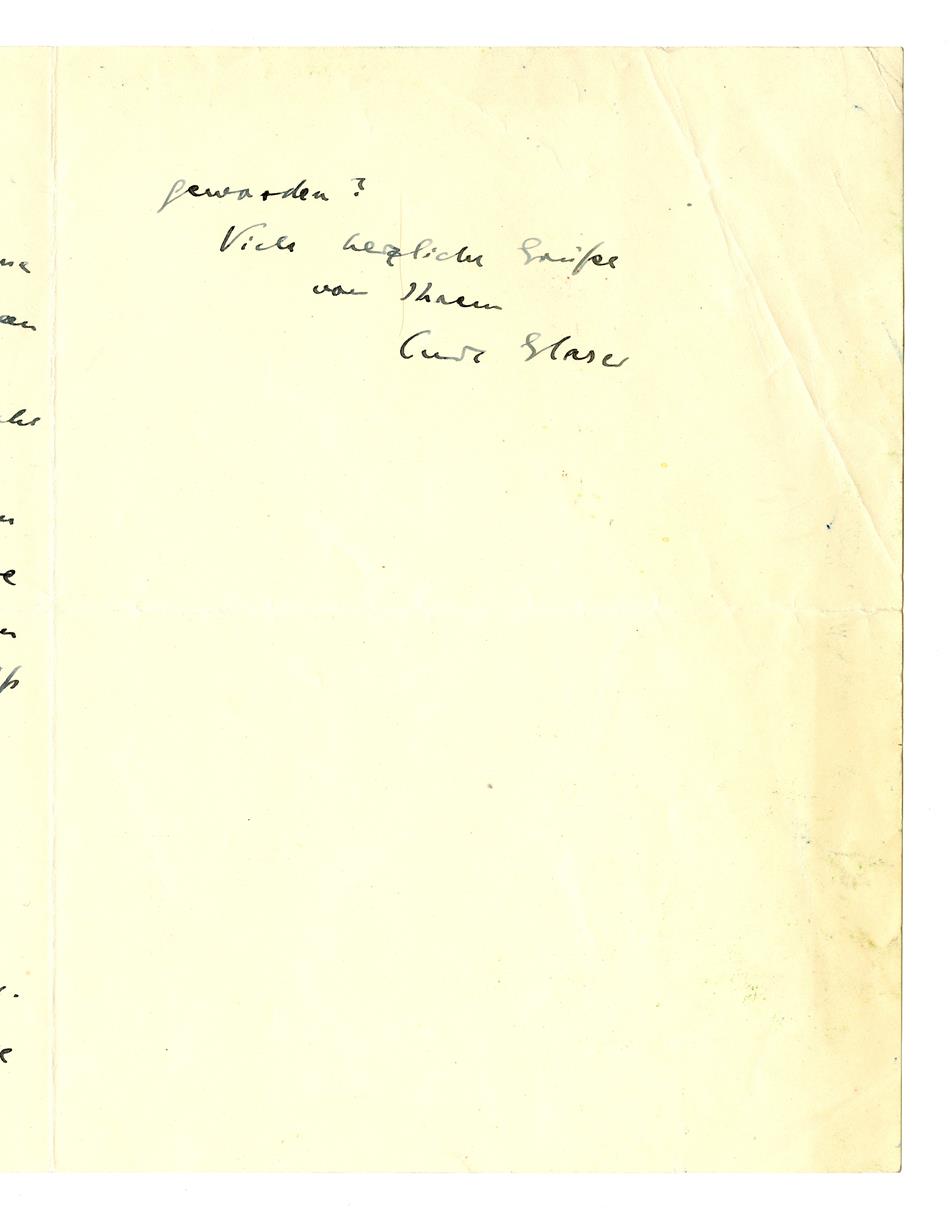 geworden ?
Viele herzliche Grüße
von Ihrem
Curt Glaser